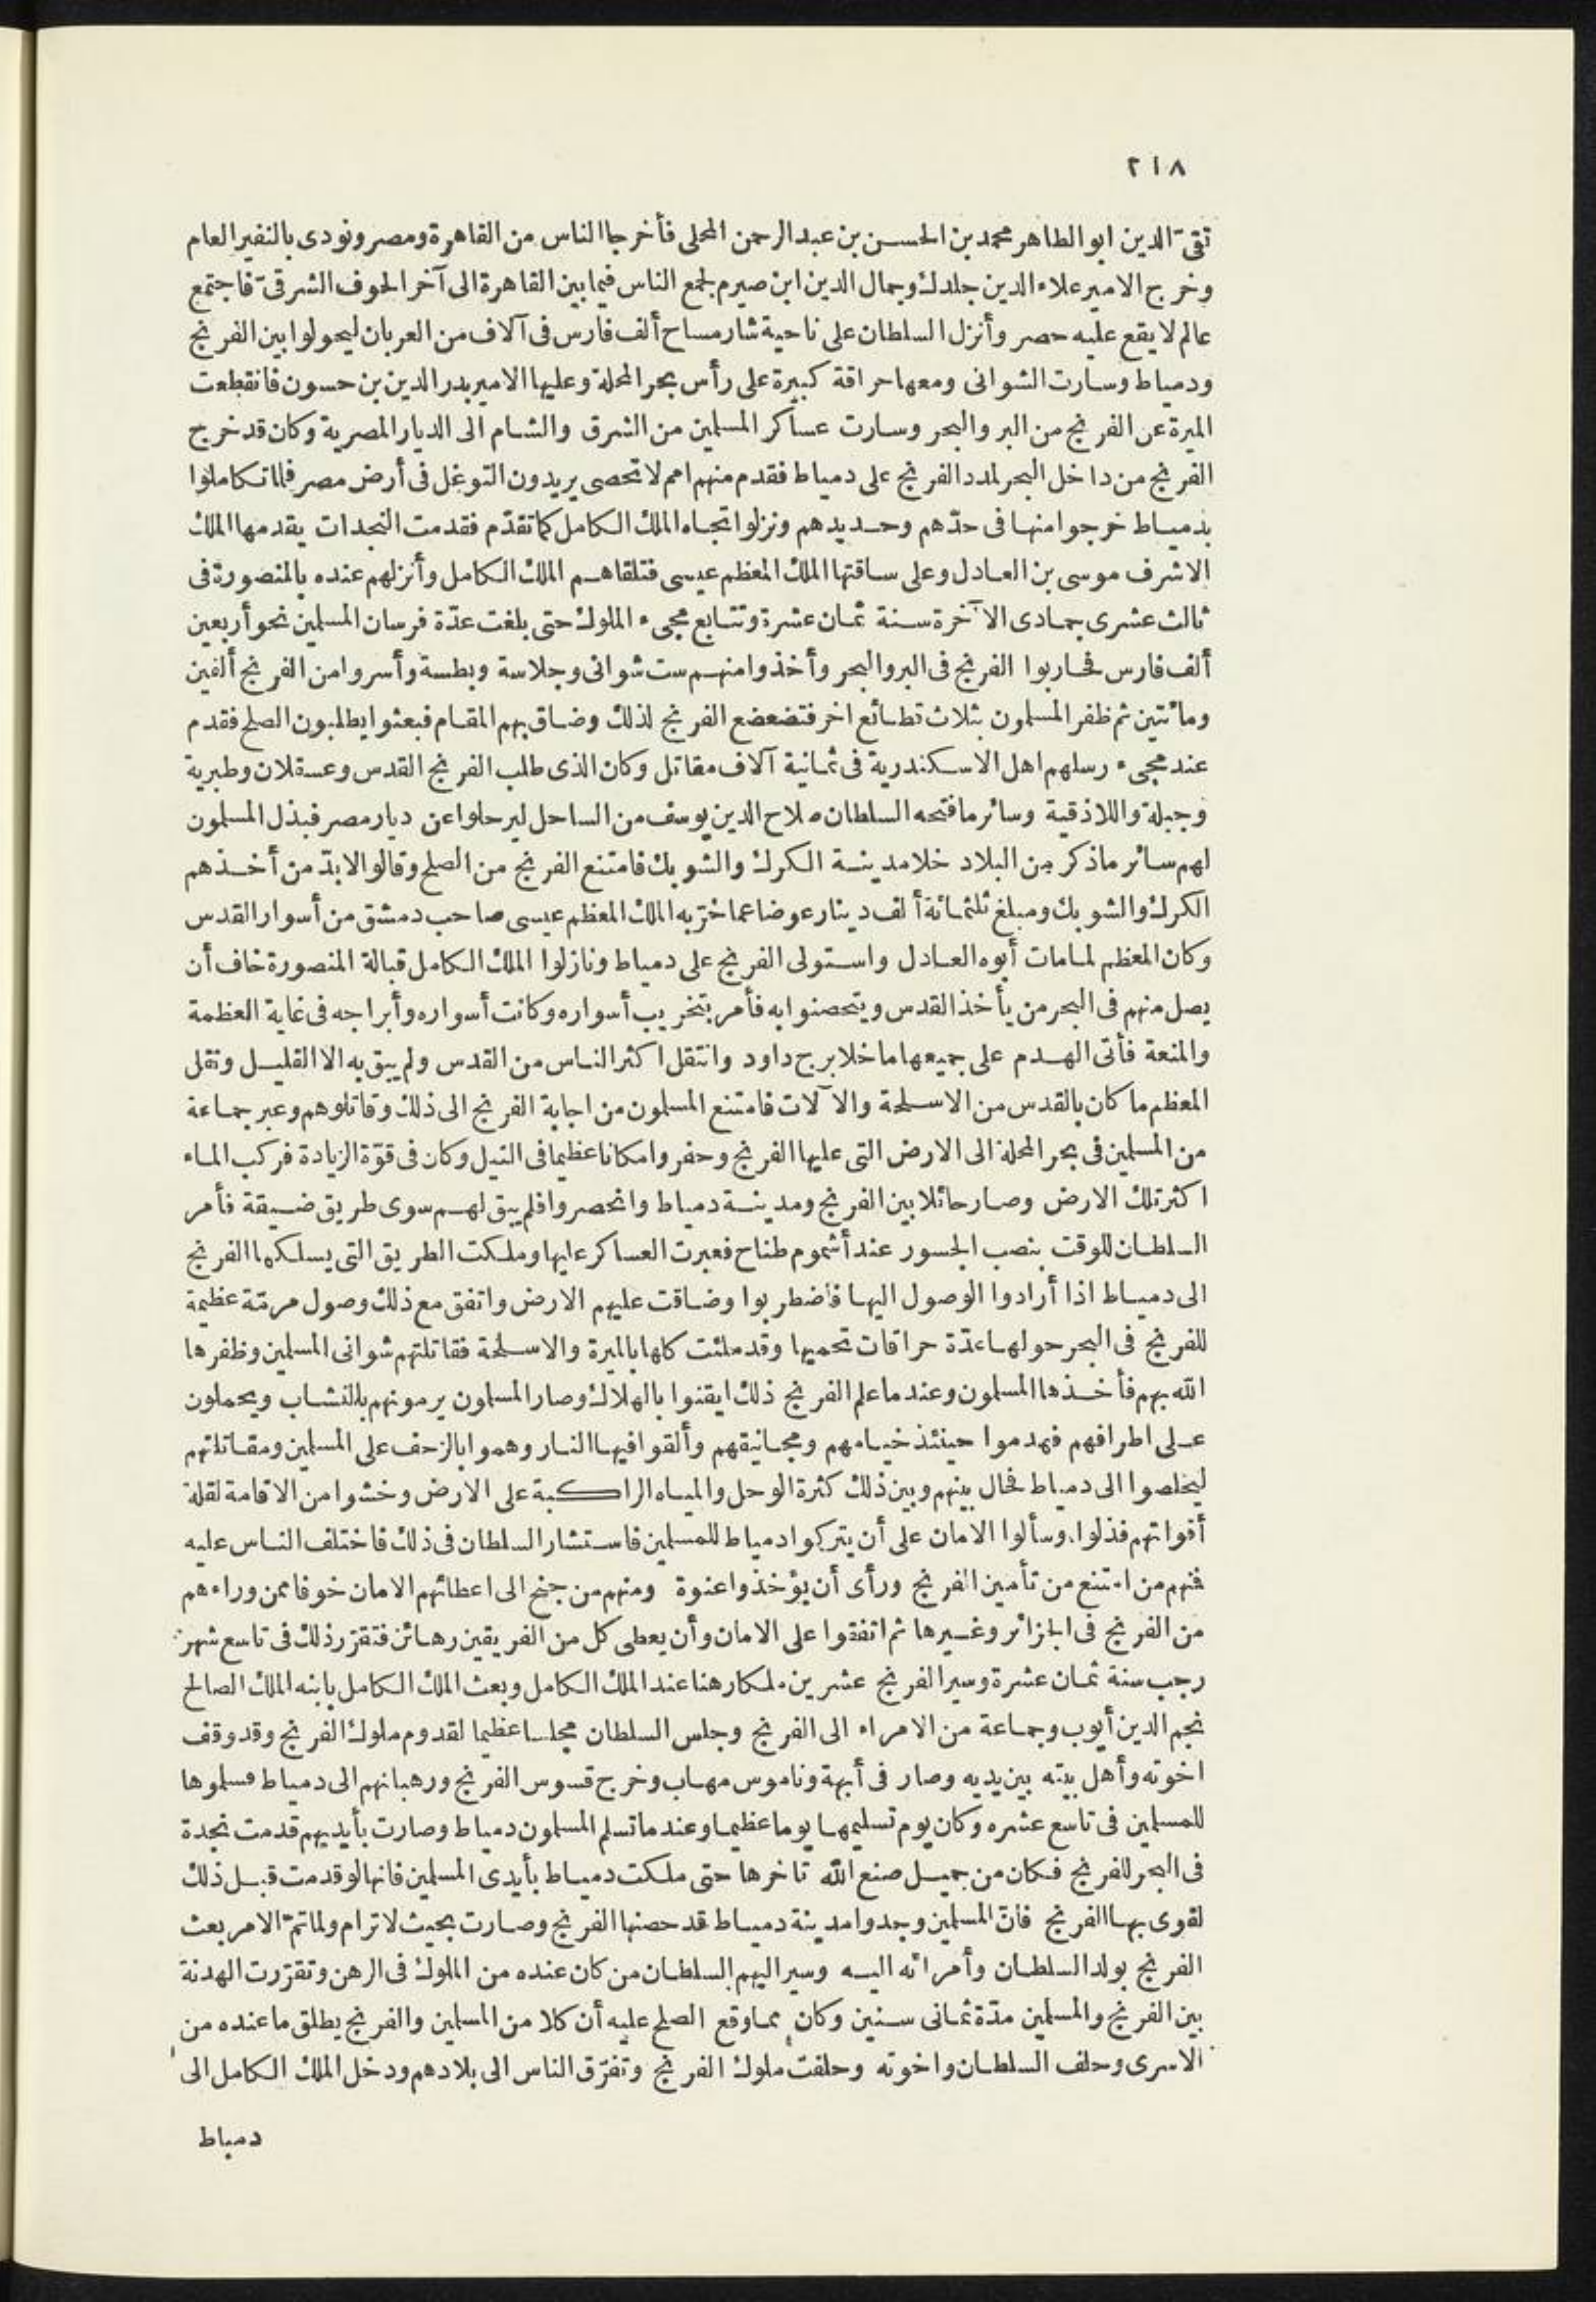 ٢١٨
تقىّ الدين ابو الطاهر محمد بن الحسن بن عبد الرحمن المحلى فأخرجا الناس من القاهرة ومصر ونودى بالنفير العام
وخرج الامير علاء الدين جلدك وجمال الدين ابن صيرم لجمع الناس فيما بين القاهرة الى آخر الحوف الشرقىّ فاجتمع
عالم لا يقع عليه حصر وأنزل السلطان على ناحية شارمساح ألف فارس فى آلاف من العربان ليحولوا بين الفرنج
ودمياط وسارت الشوانى ومعها حراقة كبيرة على رأس بحر المحلة وعليها الامير بدر الدين بن حسون فانقطعت
الميرة عن الفرنج من البر والبحر وسارت عساكر المسلمين من الشرق والشام الى الديار المصرية وكان قد خرج
الفرنج من داخل البحر لمدد الفرنج على دمياط فقدم منهم امم لا تحصى يريدون التوغل فى أرض مصر فلما تكاملوا
بدمياط خرجوا منها فى حدّهم وحديدهم ونزلوا تجاه الملك الكامل كما تقدّم فقدمت النجدات يقدمها الملك
الاشرف موسى بن العادل وعلى ساقتها الملك المعظم عيسى فتلقاهم الملك الكامل وأنزلهم عنده بالمنصورة فى
ثالث عشرى جمادى الآخرة سنة ثمان عشرة وتتابع مجىء الملوك حتى بلغت عدّة فرسان المسلمين نحو أربعين
ألف فارس فحاربوا الفرنج فى البر والبحر وأخذوا منهم ست شوانى وجلاسة وبطسة وأسروا من الفرنج ألفين
ومائتين ثم ظفر المسلمون بثلاث قطائع اخر فتضعضع الفرنج لذلك وضاق بهم المقام فبعثوا يطلبون الصلح فقدم
عند مجىء رسلهم اهل الاسكندرية فى ثمانية آلاف مقاتل وكان الذى طلب الفرنج القدس وعسقلان وطبرية
وجبلة واللاذقية وسائر ما فتحه السلطان صلاح الدين يوسف من الساحل ليرحلوا عن ديار مصر فبذل المسلمون
لهم سائر ما ذكر من البلاد خلا مدينة الكرك والشوبك فامتنع الفرنج من الصلح وقالوا لابدّ من أخذهم
الكرك والشوبك ومبلغ ثلثمائة ألف دينار عوضا عما خرّبه الملك المعظم عيسى صاحب دمشق من أسوار القدس
وكان المعظم لما مات أبوه العادل واستولى الفرنج على دمياط ونازلوا الملك الكامل قبالة المنصورة خاف أن
يصل منهم فى البحر من يأخذ القدس ويتحصنوا به فأمر بتخريب أسواره وكانت أسواره وأبراجه فى غاية العظمة
والمنعة فأتى الهدم على جميعها ما خلا برج داود وانتقل اكثر الناس من القدس ولم يبق به الا القليل ونقل
المعظم ما كان بالقدس من الاسلحة والآلات فامتنع المسلمون من اجابة الفرنج الى ذلك وقاتلوهم وعبر جماعة
من المسلمين فى بحر المحلة الى الارض التى عليها الفرنج وحفروا مكانا عظيما فى النيل وكان فى قوّة الزيادة فركب الماء
اكثر تلك الارض وصار حائلا بين الفرنج ومدينة دمياط وانحصروا فلم يبق لهم سوى طريق ضيقة فأمر
السلطان للوقت بنصب الجسور عند أشموم طناح فعبرت العساكر عليها وملكت الطريق التى يسلكها الفرنج
الى دمياط اذا أرادوا الوصول اليها فاضطربوا وضاقت عليهم الارض واتفق مع ذلك وصول مرمّة عظيمة
للفرنج فى البحر حولها عدّة حراقات تحميها وقد ملئت كلها بالميرة والاسلحة فقاتلتهم شوانى المسلمين وظفرها
الله بهم فأخذها المسلمون وعند ما علم الفرنج ذلك ايقنوا بالهلاك وصار المسلمون يرمونهم بالنشاب ويحملون
على اطرافهم فهدموا حينئذ خيامهم ومجانيقهم وألقوا فيها النار وهموا بالزحف على المسلمين ومقاتلتهم
ليخلصوا الى دمياط فحال بينهم وبين ذلك كثرة الوحل والمياه الراكبة على الارض وخشوا من الاقامة لقلة
أقواتهم فذلوا وسألوا الامان على أن يتركوا دمياط للمسلمين فاستشار السلطان فى ذلك فاختلف الناس عليه
فمنهم من امتنع من تأمين الفرنج ورأى أن يؤخذوا عنوة ومنهم من جنح الى اعطائهم الامان خوفا ممن وراءهم
من الفرنج فى الجزائر وغيرها ثم اتفقوا على الامان وأن يعطى كل من الفريقين رهائن فتقرّر ذلك فى تاسع شهر
رجب سنة ثمان عشرة وسير الفرنج عشرين ملكا رهنا عند الملك الكامل وبعث الملك الكامل بابنه الملك الصالح
نجم الدين أيوب وجماعة من الامراء الى الفرنج وجلس السلطان مجلسا عظيما لقدوم ملوك الفرنج وقد وقف
اخوته وأهل بيته بين يديه وصار فى أبهة وناموس مهاب وخرج قسوس الفرنج ورهبانهم الى دمياط فسلموها
للمسلمين فى تاسع عشره وكان يوم تسليمها يوما عظيما وعند ما تسلم المسلمون دمياط وصارت بأيديهم قدمت نجدة
فى البحر للفرنج فكان من جميل صنع الله تاخرها حتى ملكت دمياط بأيدى المسلمين فانها لو قدمت قبل ذلك
لقوى بها الفرنج فانّ المسلمين وجدوا مدينة دمياط قد حصنها الفرنج وصارت بحيث لا ترام ولما تمّ الامر بعث
الفرنج بولد السلطان وأمرائه اليه وسير اليهم السلطان من كان عنده من الملوك فى الرهن وتقرّرت الهدنة
بين الفرنج والمسلمين مدّة ثمانى سنين وكان مما وقع الصلح عليه أن كلا من المسلمين والفرنج يطلق ما عنده من
الاسرى وحلف السلطان واخوته وحلفت ملوك الفرنج وتفرّق الناس الى بلادهم ودخل الملك الكامل الى
دمياط